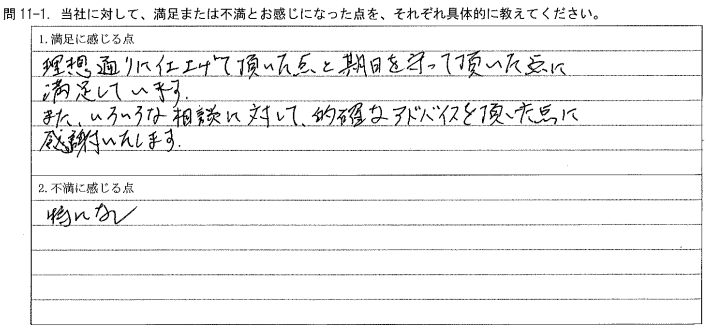 問 11-1. 当社に対して、満足または不満とお感じになった点を、それぞれ具体的に教えてください。
1.満足に感じる点
理想通りに仕上げて頂いた点と期日を守って頂いた点に
満足しています.
また、いろいろな相談に対して、的確なアドバイスを頂いた点に
感謝いたします.
2.不満に感じる点
特になし